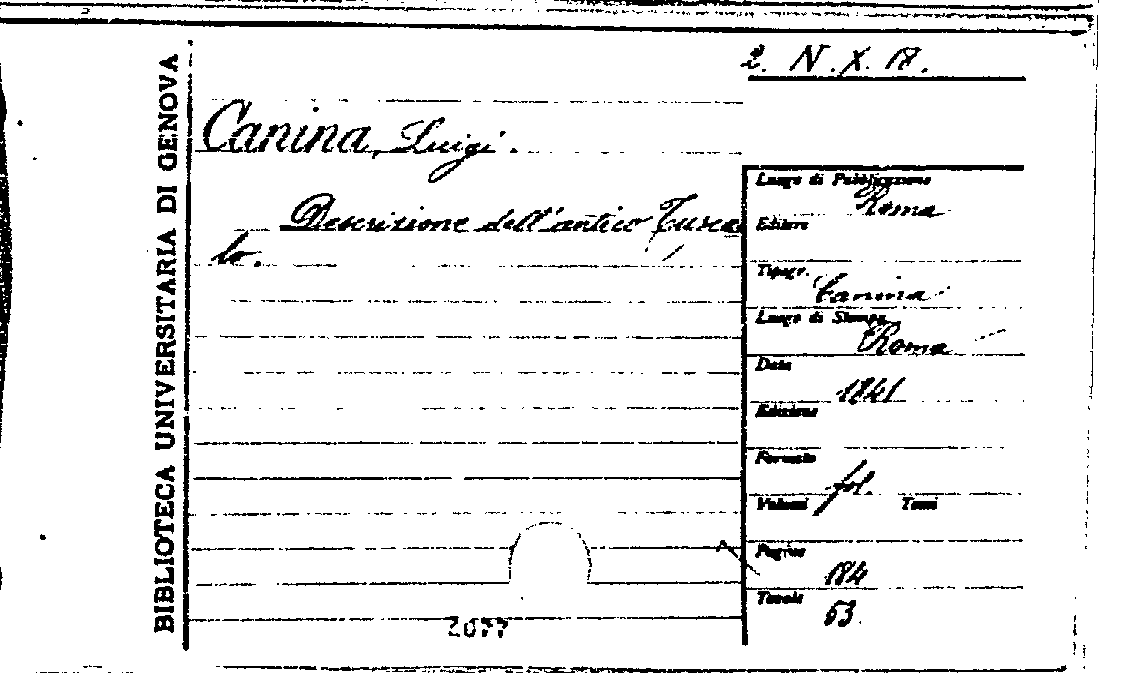 BIBLIOTECA UNIVERSITARIA DI GENOVA
2. N. X. 18.
Canina, Luigi.
Descrizione dell'antico Tusco
lo.
Luogo di Pubblicazione
Roma
Editore
Tipogr.
Canina
Luogo di Stampa
Roma
Data
1841
Edizione
Formato
fol.
Volumi Tomi
Pagine
184
Tavole
53
2077